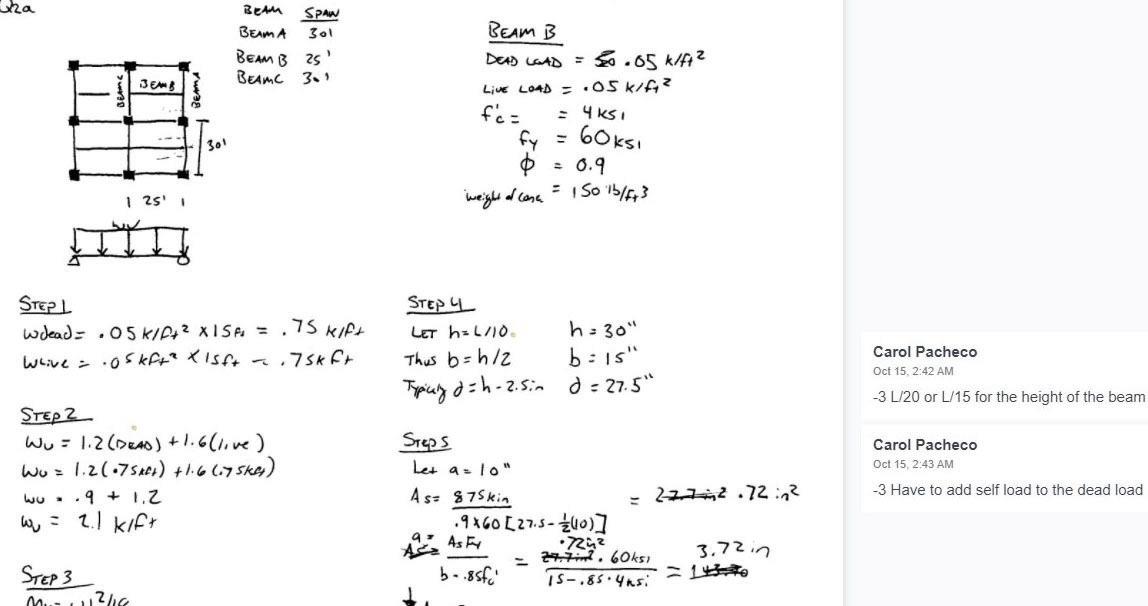 Q2a
BEAM SPAN
BEAM A 30'
BEAM B 25'
BEAM C 30'
BEAM C
BEAM B
BEAM A
30'
25'
W
BEAM B
DEAD LOAD = .05 k/ft²
LIVE LOAD = .05 k/ft²
f'c = = 4 ksi
fy = 60 ksi
φ = 0.9
weight of conc = 150 lb/ft3
STEP 1
Wdead = .05 k/ft² x 15 ft = .75 k/ft
Wlive = .05 kft² x 15ft = .75k ft
STEP 2
Wu = 1.2(DEAD) + 1.6(live)
Wu = 1.2(.75kft) + 1.6(.75kft)
Wu = .9 + 1.2
Wu = 2.1 k/ft
STEP 3
STEP 4
LET h = L/10. h = 30"
Thus b = h/2 b = 15"
Typicly d = h - 2.5in d = 27.5"
Step 5
Let a = 10"
As = 875kin / .9x60[27.5-½(10)] = .72 in²
a = AsFy / b-.85fc' = .72in² . 60ksi / 15-.85.4ksi = 3.72 in
Carol Pacheco
Oct 15, 2:42 AM
-3 L/20 or L/15 for the height of the beam
Carol Pacheco
Oct 15, 2:43 AM
-3 Have to add self load to the dead load